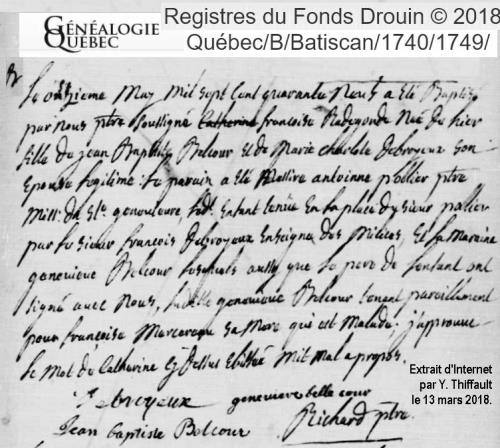 GÉNÉALOGIE
QUÉBEC
Registres du Fonds Drouin © 2018
Québec/B/Batiscan/1740/1749/
B
Le onzieme May Mil sept Cent quarante Neuf a Eté Baptisé
par nous ptre soussigné Catherine francoise Radegonde Née de hier
fille de jean Baptiste Belcour et de Marie charlote debroyeux son
Epouse legitime. Le parain a Eté Messire antoinne pallier ptre
Miss. de Ste. genevieve, led. Enfant tenüe En la place du sieur pallier
par le sieur francois debroyeux Enseigne des Milices, Et la Maraine
genevieve Belcour lesquels aussy que le pere de lenfant ont
signé avec Nous, genevieve Belcour tenant pareillement
pour francoise Marcereau sa Mere qui est Malade; j'approuve
le Mot de Catherine Cy Dessus Mit mal apropos.
debroyeux genevieve belle cour
Jean baptiste Belcour Richard ptre
Extrait d'Internet
par Y. Thiffault
le 13 mars 2018.